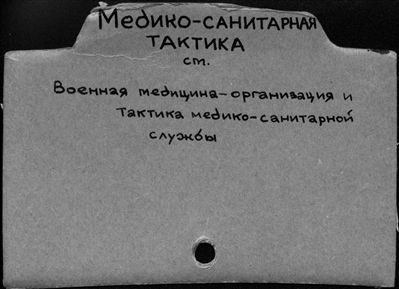 Медико-санитарная
тактика
см.
Военная медицина-организация и
тактика медико-санитарной
службы